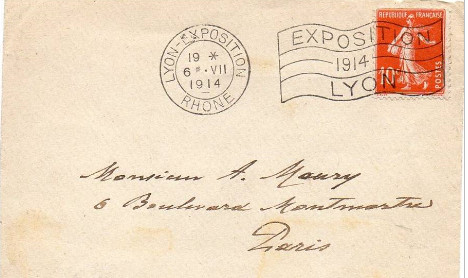 LYON-EXPOSITION
19 *
6 · VII
1914
RHONE
EXPOSITION
1914
LYON
REPUBLIQUE FRANÇAISE
10c
POSTES
Monsieur A. Maury
6 Boulevard Montmartre
Paris